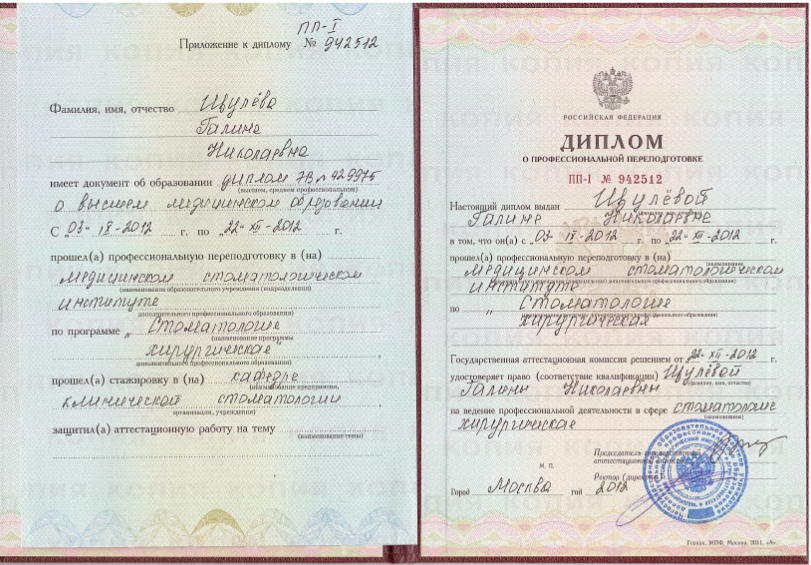 ПП-I
Приложение к диплому № 942512
Фамилия, имя, отчество Шулёва
Галина
Николаевна
имеет документ об образовании диплом
(высшем, среднем профессиональном)
о высшем медицинском образовании
С „03" IX-2012 г. по „22" XII-2012 г.
прошел(а) профессиональную переподготовку в (на)
Медицинском стоматологическом
(наименование образовательного учреждения (подразделения)
институте
дополнительного профессионального образования)
по программе „ Стоматология
(наименование программы
хирургическая
дополнительного профессионального образования)
прошел(а) стажировку в (на) кафедре
(наименование предприятия,
клинической стоматологии
организации, учреждения)
защитил(а) аттестационную работу на тему
(наименование темы)
РОССИЙСКАЯ ФЕДЕРАЦИЯ
ДИПЛОМ
О ПРОФЕССИОНАЛЬНОЙ ПЕРЕПОДГОТОВКЕ
ПП-I № 942512
Настоящий диплом выдан
Галине Николаевне
в том, что он(а) с „03" IX-2012 г. по „22"-XII-2012 г.
прошел(а) профессиональную переподготовку в (на)
Медицинском стоматологическом
институте
по „ Стоматология
хирургическая
Государственная аттестационная комиссия решением от 22-XII-2012 г.
удостоверяет право (соответствие квалификации)
(фамилия, имя, отчество)
Галины Николаевны
на ведение профессиональной деятельности в сфере стоматология
(наименование)
хирургическая
Председатель
аттестационной
М. П.
Ректор (директор)
Город Москва год 2012
Гознак, МПФ, Москва, 2011, «А».
КОПИЯ